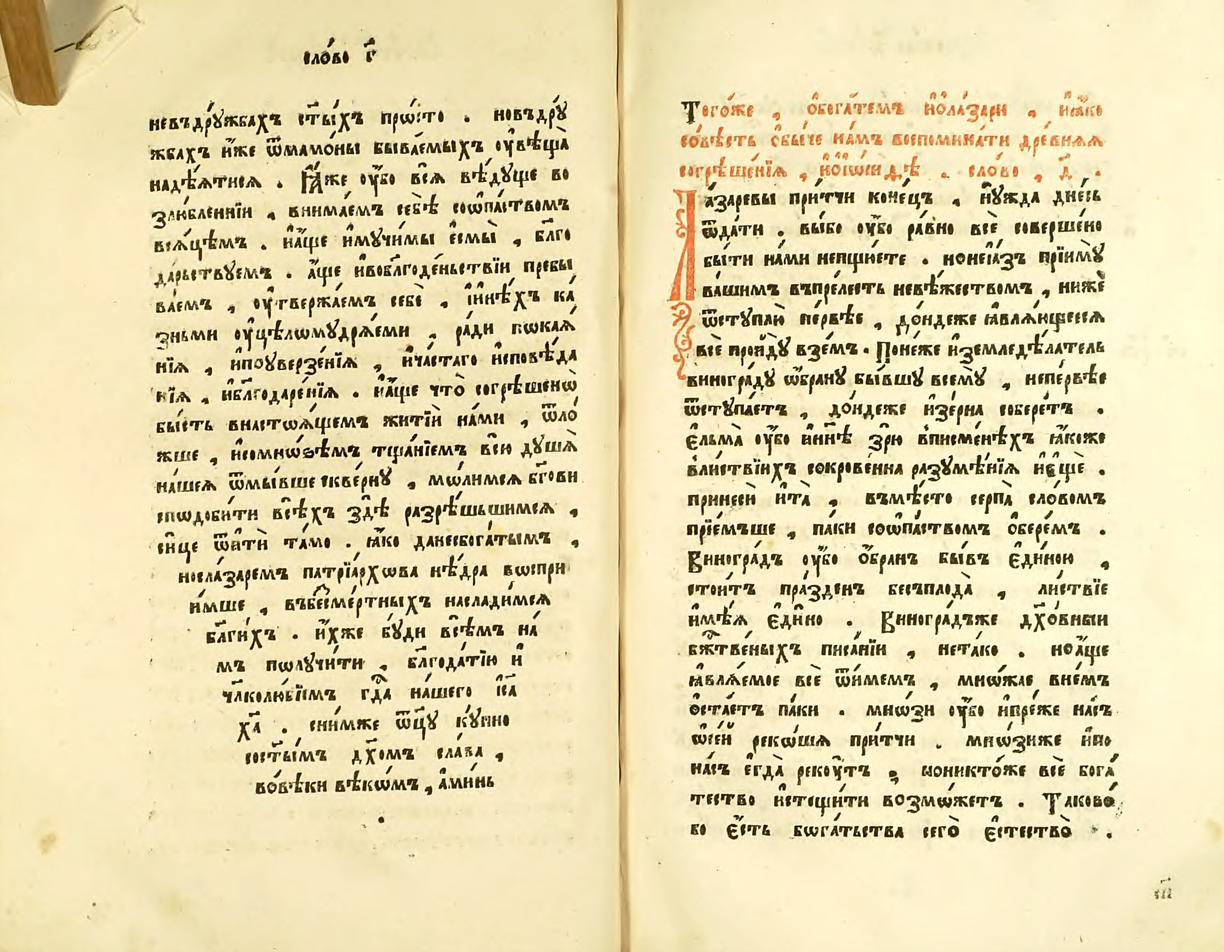 сло́во г҃
невъдрꙋ́жбахъ ст҃ы́хъ прѡ́сто . новъдрꙋ́
жбахъ и҆́же ѿмамо́ны быва́емыхъ оу҆вѣща̀
надѣ́ѧтисѧ . Ꙗ҆́же оу҆́бо всѧ̀ вѣ́дꙋще во
злю́бленнїи , внима́емъ себѣ̀ соѡпа́ствомъ
всѧ́цѣмъ . и҆а҆́ще и҆мꙋчи́мы є҆смы̀ , бл҃го
да́рьствꙋемъ . а҆́ще и҆вобл҃годе́ньствїи пребы
ва́емъ , оу҆твержа́емъ себѐ , и҆и҆нѣ́хъ ка́
зньми оу҆цѣлѡмꙋдрѧ́еми , ра́ди пѡкаѧ́
нїѧ , и҆поуверзе́нїѧ , и҆ча́стаго и҆повѣ́да
нїѧ , и҆бл҃годаре́нїѧ . и҆а҆́ще что̀ согрѣшенѡ̀
бы́сть внастѡѧ́щемъ житїѝ на́ми , ѿло́
жше , и҆сомнѡ́зѣмъ тща́нїемъ всю̀ дꙋшѧ̀
на́шеѧ ѿмы́вше скве́рнꙋ , мѡ́лимсѧ бг҃ови
спѡдо́бити всѣ́хъ здѣ̀ разрѣ́шьшимсѧ ,
си́це ѿитѝ та́мо . ꙗ҆́ко данесбога́тымъ ,
носла́заремъ патрїа́рхѡва нѣ́дра вѡспри
и҆́мше , въбесме́ртныхъ наслади́мсѧ
бл҃ги́хъ . и҆́хже бꙋ́ди всѣ́мъ на́
мъ пѡлꙋчи́ти , бл҃года́тїю и҆
чл҃колю́бїемъ гд҇а на́шего і҆с҃а
х҃а . сни́мже ѿц҃ꙋ кꙋ́пно
сост҃ы́мъ дх҃омъ сла́ва ,
вовѣ́ки вѣкѡ́мъ , а҆ми́нь
Тогѡ́же , ѻ҆бога́темъ и҆ѻ҆ла́зари , и҆ꙗ҆́ко
со́вѣсть ѻ҆бы́че на́мъ воспомина́ти дре́внѧѧ
согрѣше́нїѧ , и҆ѻ҆і҆ѡ́сифѣ . сло́во , д҃ .
Ла́заревы при́тчи коне́цъ , нꙋ́жда дне́сь
ѿда́ти . вы́бо оу҆́бо ра́вно всѐ соверше́но
бы́ти на́ми непщꙋ́ете . ноне́і҆а҆зъ прїимꙋ̀
ва́шимъ впре́лесть невѣ́жествомъ , нижѐ
ѿстꙋпа́ю пе́рвѣе , до́ндеже ꙗ҆влѧ́ющеесѧ
всѐ проидꙋ̀ взе́мъ . Поне́же и҆землед́ѣлатель
виногра́дꙋ ѡ҆бра́нꙋ бы́вшꙋ всемꙋ̀ , непе́рвѣе
ѿстꙋпа́етъ , до́ндеже и҆зе́рна собере́тъ .
Є҆льма̀ оу҆́бо и҆ны́нѣ зрю̀ впи́сменѣхъ ꙗ҆́коже
вли́ствїихъ сокрове́нна разꙋмѣ́нїѧ и҆є҆щѐ .
принесѝ и҆та̀ , въмѣ́сто се́рпа сло́вомъ
прїе́мъше , па́ки соѡпа́ствомъ ѻ҆бере́мъ .
Виногра́дъ оу҆́бо ѻ҆́бранъ бы́въ є҆ди́ною ,
стои́тъ пра́зденъ бесъплода̀ , ли́ствїе
и҆мѣ́ѧ є҆ди́но . Виногра́дъже дх҃о́вныи
бж҇твеныхъ писа́нїи , нета́ко . ноа҆́ще
ꙗ҆влѧ́емое всѐ ѿи́мемъ , мнѡ́жае вне́мъ
ѻ҆ста́етъ па́ки . мнѡ́зи оу҆́бо и҆пре́же на́съ
ѡ҆се́й реко́шѧ при́тчи . мнѡ́зиже и҆по
на́съ є҆гда̀ рекꙋ́тъ , нониктѡ́же всѐ бога́
тество и҆стощи́ти возмѡ́жетъ . Таково́
бо є҆́сть бѡга́тьства сего̀ є҆стество̀ .